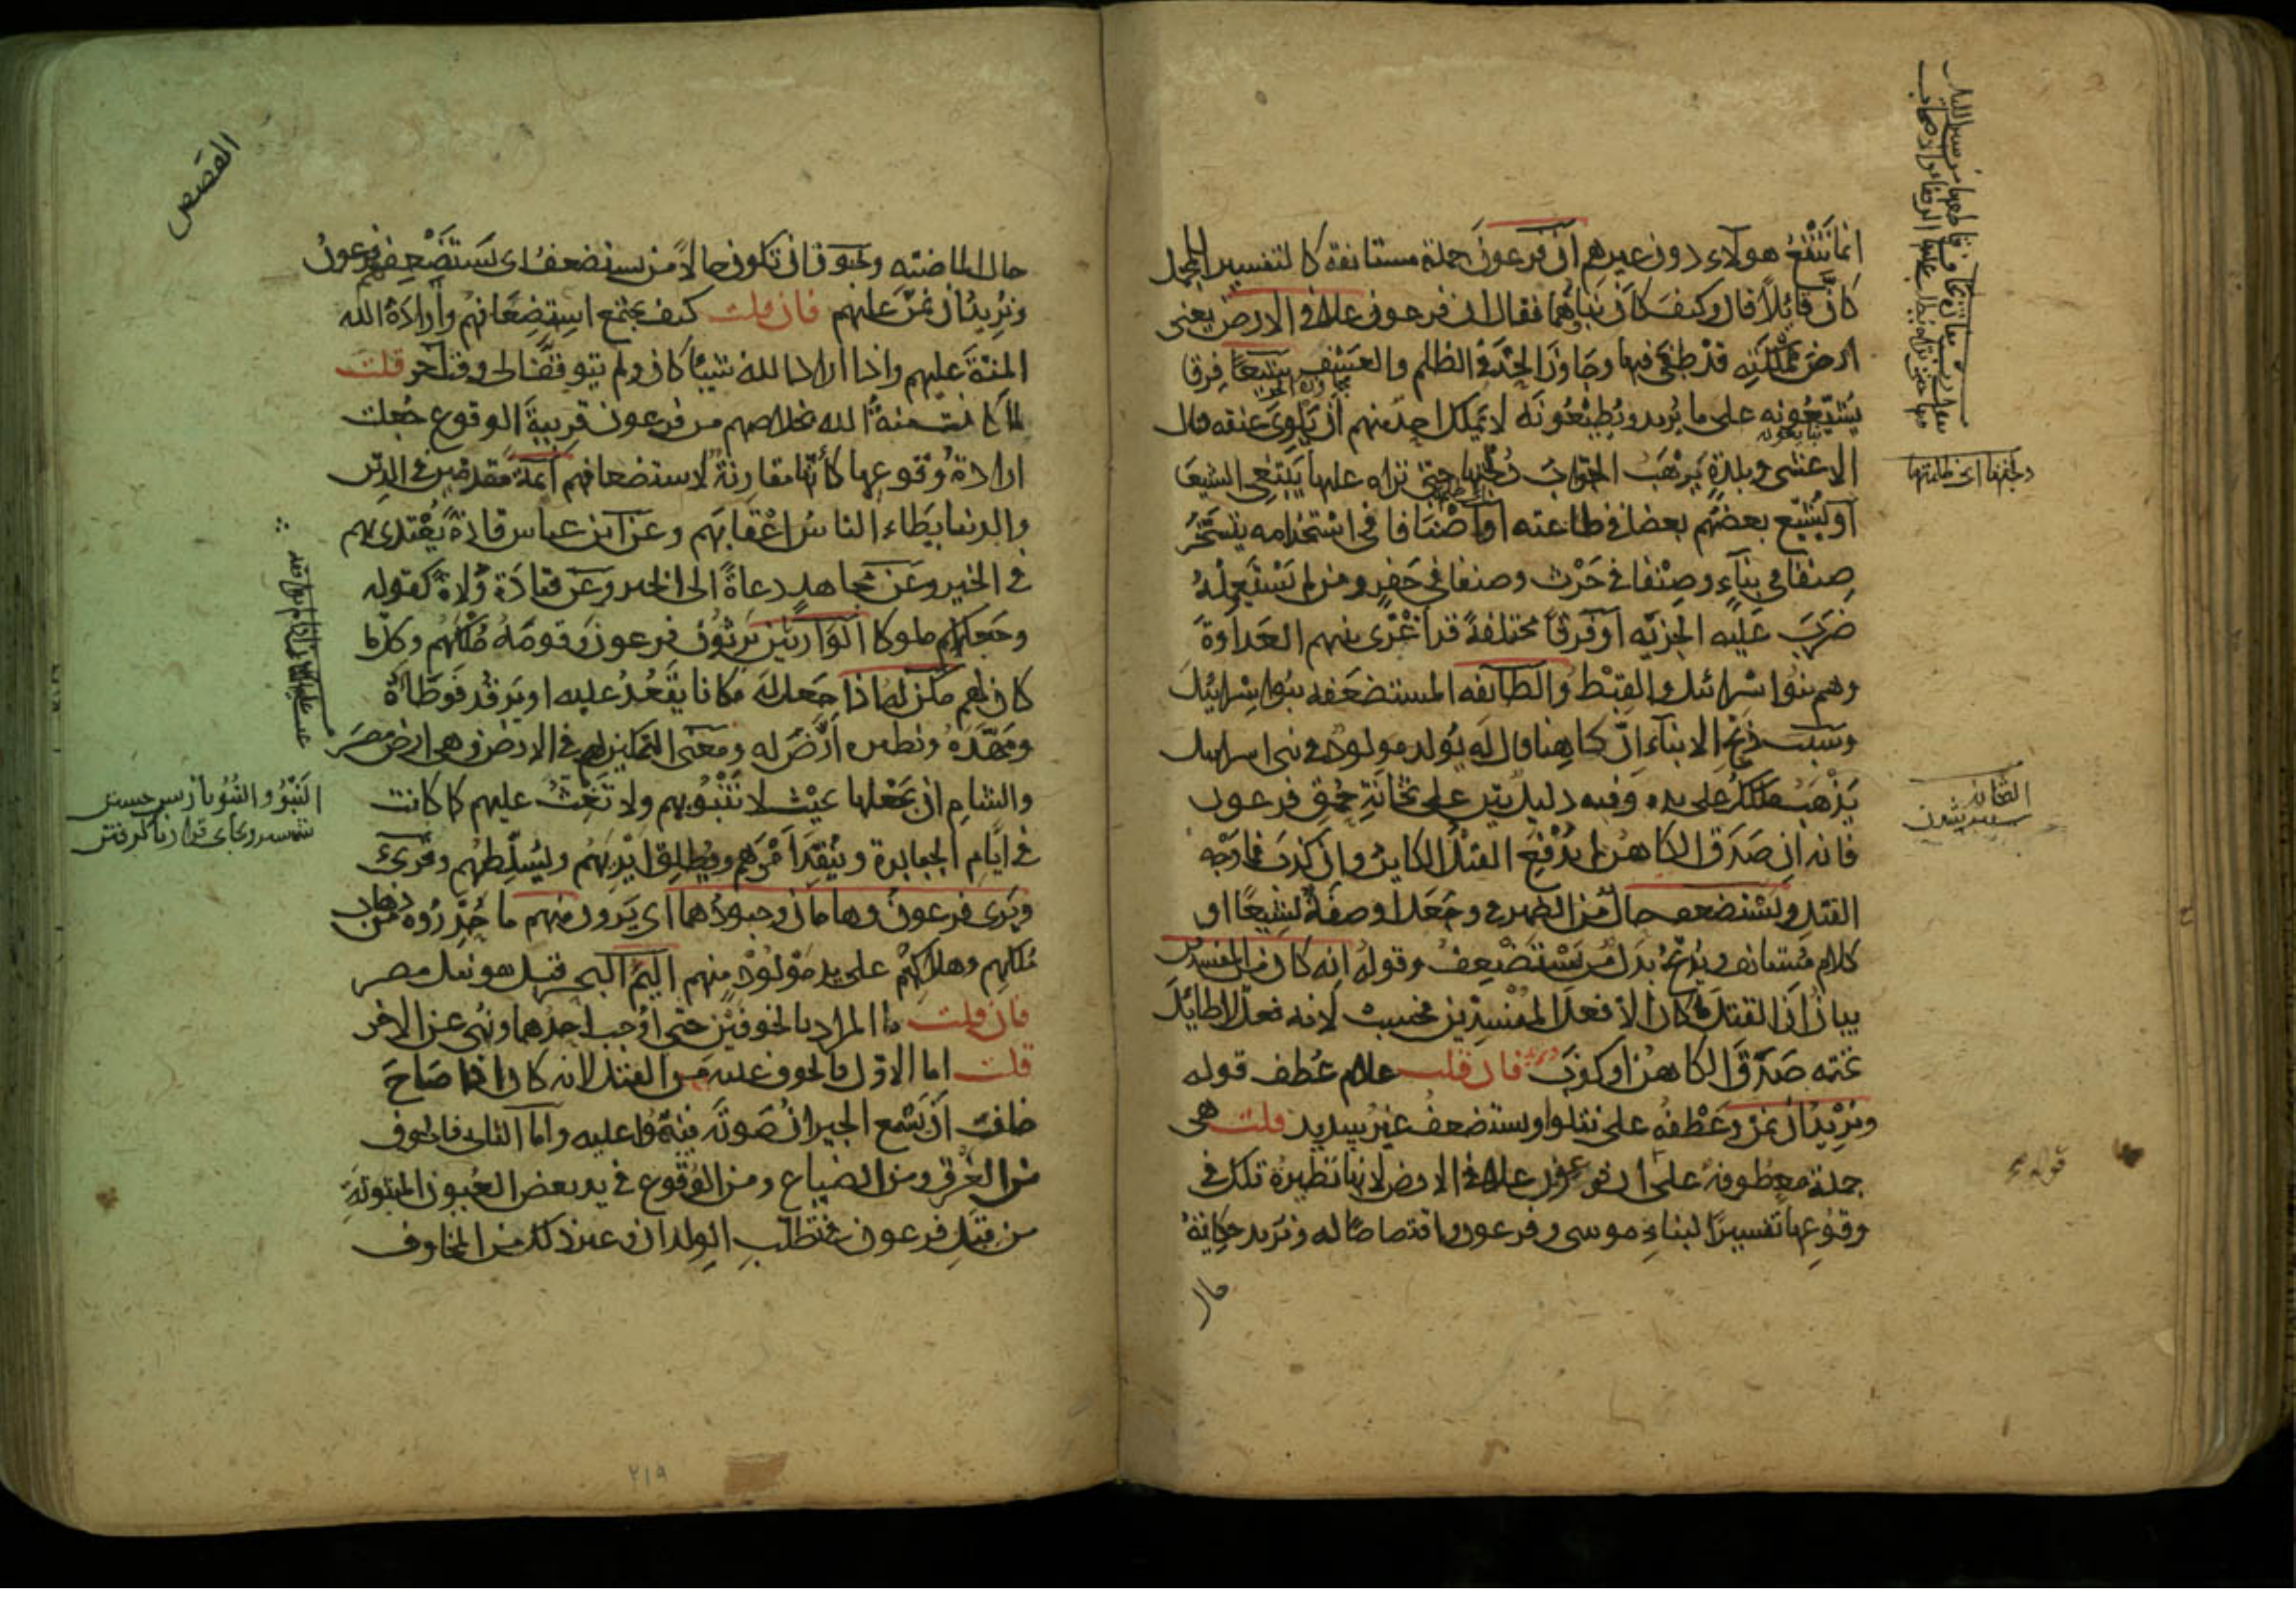 انما تنفع هولاء دون غيرهم ان فرعون جملة مستانفة كالتفسير للمجمل
كان قايلا قال وكيف كان نباؤهما فقال ان فرعون علا في الارض يعنى
ارض مملكته قد طغى فيها وجاوز الحد في الظلم والعسف شيعا فرقا
يشيعونه على ما يريد ويطيعونه لا يملك احد منهم ان يلوى عنقه قال
الاعشى وبلدة يرهب الجواب دلجتها حتى تراه عليها يبتغى الشيعا
او يشيع بعضهم بعضا في طاعته او اصنافا في استخدامه يتسخر
صنفا في بناء وصنفا في حرث وصنفا في حفر ومن لم يستعمله
ضرب عليه الجزية او فرقا مختلفة قد اغرى بينهم العداوة
وهم بنوا اسرائيل والقبط والطائفه المستضعفه بنوا اسرائيل
وسبب ذبح الابناء ان كاهنا قال له يولد مولود في بنى اسرايل
يذهب ملكك على يده وفيه دليل بين على ثخانة حمق فرعون
فانه ان صدق الكاهن لم يدفع القتل الكاين وان كذب فما وجه
القتل ويستضعف حال من الضمير في وجعل او صفة لشيعا او
كلام مستانف ويذبح بدل من يستضعف وقوله انه كان من المفسدين
بيان ان القتل ما كان الا فعل المفسدين فحسب لانه فعل لا طايل
تحته صدق الكاهن او كذب فان قلت علام عطف قوله
ونريد ان نمن وعطفه على نتلوا ويستضعف غير سديد قلت هى
جملة معطوفة على ان فرعون علا في الارض لانها نظيرة تلك في
وقوعها تفسيرا لنباء موسى وفرعون واقتصاصا له ونريد حكاية
حال
القصص
حال الماضيه ويجوز ان تكون حالا من يستضعف اى يستضعفهم فرعون
ونريد ان نمن عليهم فان قلت كيف يجتمع استضعافهم وارادة الله
المنة عليهم واذا اراد الله شيئا كان ولم يتوقف الى وقت آخر قلت
لما كانت منة الله بخلاصهم من فرعون قريبة الوقوع جعلت
ارادة وقوعها كأنها مقارنة لاستضعافهم ائمة مقدمين في الدين
والدنيا يطاء الناس اعقابهم وعن ابن عباس قادة يقتدى بهم
في الخير وعن مجاهد دعاة الى الخير وعن قتادة ولاة كقوله
وجعلكم ملوكا الوارثين يرثون فرعون وقومه ملكهم وكل ما
كان لهم مكن له اذا جعل له مكانا يقعد عليه او يرقد فوطأه
ومهده ونظيره ارض له ومعنى التمكين لهم في الارض وهى ارض مصر
والشام ان يجعلها بحيث لا تنبو بهم ولا تغث عليهم كما كانت
في ايام الجبابرة وينفذ امرهم ويطلق ايديهم ويسلطهم وقرئ
ويرى فرعون وهامان وجنودهما اى يرون منهم ما حذروه من ذهاب
ملكهم وهلاكهم على يد مولود منهم اليم البحر قيل هو نيل مصر
فان قلت ما المراد بالخوفين حتى اوجب احدهما ونهى عن الاخر
قلت اما الاول فالخوف عليه من القتل لانه كان اذا صاح
خافت ان يسمع الجيران صوته فينموا عليه واما الثانى فالخوف
من الغرق ومن الضياع ومن الوقوع في يد بعض العيون المبثوثة
من قبل فرعون في تطلب الولدان وغير ذلك من المخاوف
٢١٩